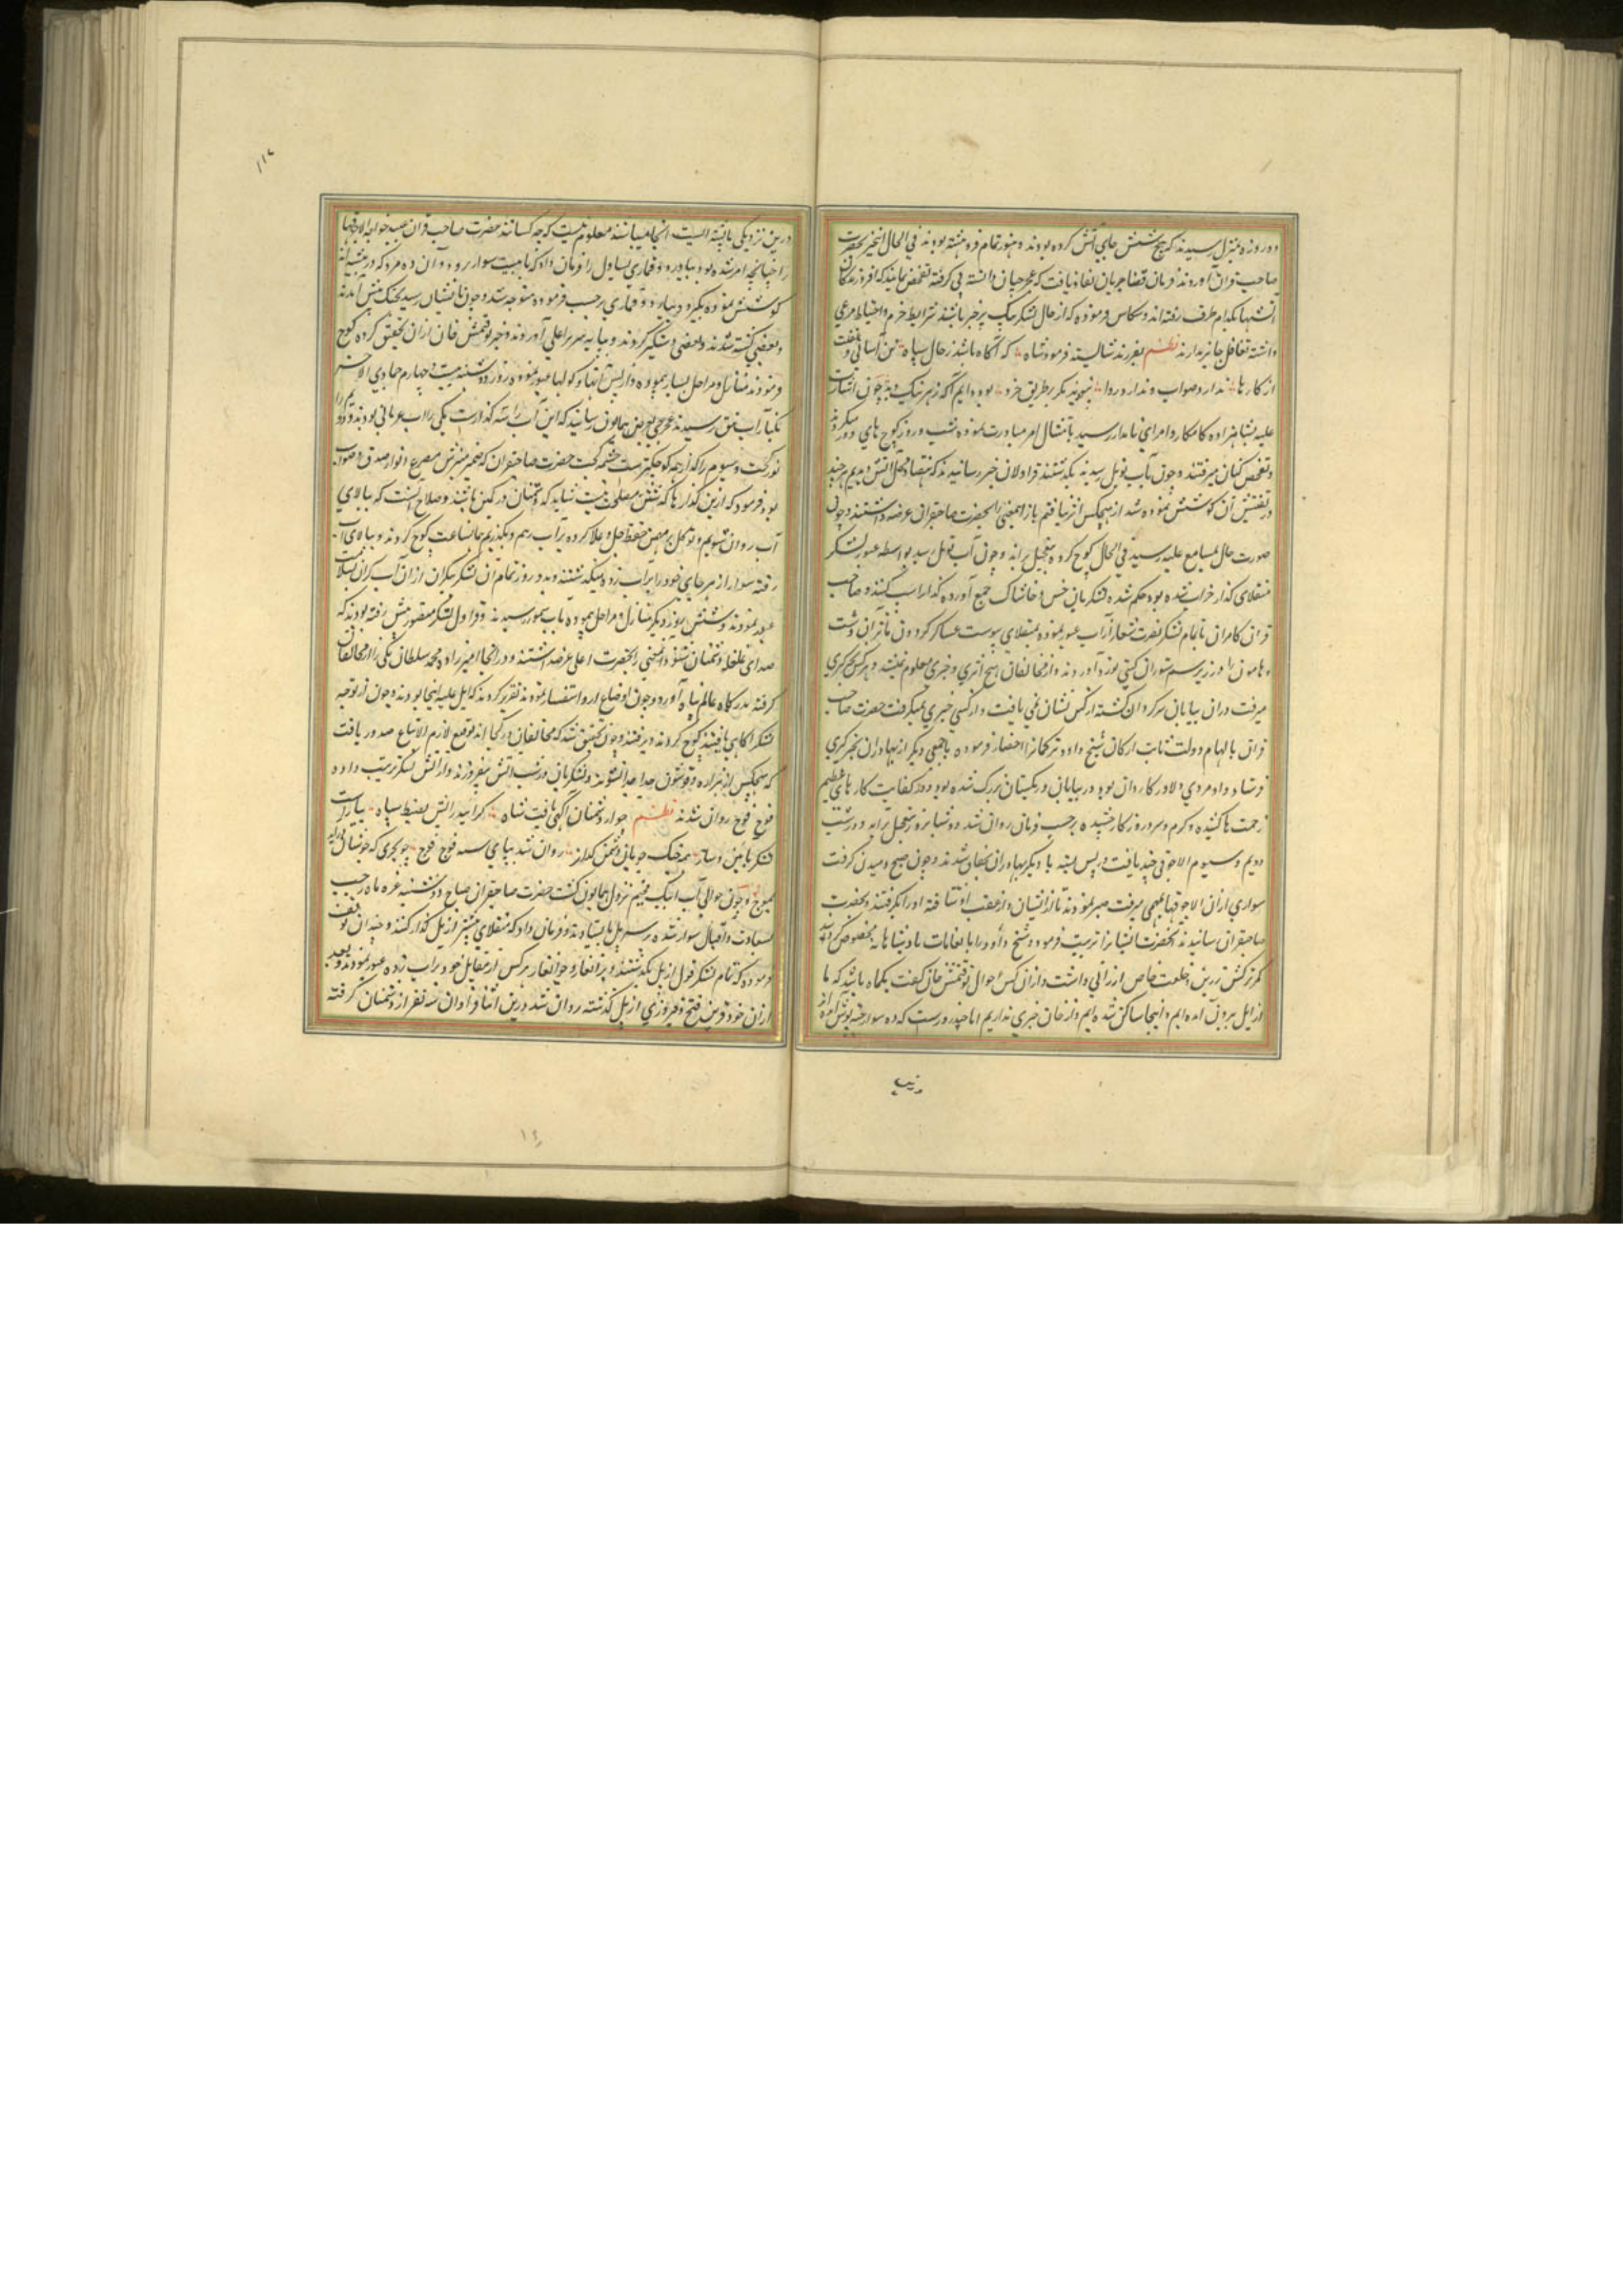 دو روزه منزل رسیدند که پنج شش جای آتش کرده بودند و هنوز تمام فرو ننشسته بود در فی الحال این خبر بحضرت
صاحب قران آوردند فرمان قضا جریان نفاذ یافت که غجرجیان دانسته پی گرفته تفحص نمایند که افروزندگان
آتشها بکدام طرف رفته اند و سکاس فرموده که از حال لشکر نیک پرخبر باشند شرایط حزم و احتیاط مرعی
داشته تغافل جایز ندارند نظم بفرزند شایسته فرمود شاه که آگاه باشد ز حال سپاه تن آسانی و غفلت
از کارها ندارد صواب و ندارد روا نپوید مگر بر طریق خرد بود دایم آگه ز هر نیک و بد چون اشارت
علیه بشاهزاده کامکار و امرای نامدار رسید بامتثال امر مبادرت نموده شب و روز کوچ های دور میکردند
و تفحص کنان میرفتند و چون بآب توبل رسیدند بگذشتند قراولان خبر رسانیدند که هفتاد محل آتش دیدیم هر چند
در تفتیش آن کوشش نموده شد از هیچکس اثر نیافتیم باز اینمعنی را بحضرت صاحبقران عرضه داشتند و چون
صورت حال بمسامع علیه رسید فی الحال کوچ کرده بتعجیل براند و چون بآب توبل رسید بواسطه عبور لشکر
منقلای گذار خراب شده بود حکم شد که لشکریان خس و خاشاک جمع آورده گذار راست کنند و صاحب
قران کامران با تمام لشکر نصرت شعار از آب عبور نموده بمنقلای پیوست عساکر گردون مآثر آن دشت
و هامون را در زیر سم ستوران گیتی نورد آوردند و از مخالفان هیچ اثری و خبری معلوم نمیشد و هر کس بخبرگیری
میرفت دران بیابان سرگردان گشته از کس نشان نمی یافت و از کسی خبری نمیگرفت حضرت صاحب
قران بالهام دولت ثابت ارکان شیخ داود ترکمان را احضار فرموده با جمعی دیگر از بهادران بخبرگیری
فرستاد و او مردی دلاور کاردان بود و در بیابان و ریگستان بزرگ شده بود و در کفایت کارهای عظیم
زحمت ها کشیده و گرم و سرد روزگار چشیده برحسب فرمان روان شد دو شبانروز بتعجیل براند و در شب
دویم و سیوم الاجوقی چند یافت در پس پشته با دیگر بهادران پنهان شدند و چون صبح دمیدن گرفت
سواری ازان الاجوقها بمهمی میرفت صبر نمودند تا از ایشان در گذشت از عقب او شتافته او را گرفتند و بحضرت
صاحبقران رسانیدند آنحضرت ایشانرا تربیت فرمود و شیخ داود را بانعامات پادشاهانه مخصوص گردانید
کمر ترکش زرین و خلعت خاص ارزانی داشت و ازان کس احوال توقتمش خان گفت یکماه باشد که ما
از ایل بیرون آمده ایم و اینجا ساکن شده ایم و از خان خبری نداریم اما چند روزست که ده سوار جبه پوش آمده اند
درین
۱۱۶
درین نزدیکی پشته ایست آنجا میباشند معلوم نیست که چه کسانند حضرت صاحب قران عید خواجه الاجوقها
را چنانچه امر شده بود بیاورد و قماری یساول را فرمان داد که با بیست سوار برود و آن ده مرد که در بیشه اند
کوشش نموده بگیرد و بیاورد و قماری برحسب فرموده متوجه شد و چون بایشان رسید بجنگ پیش آمدند
و بعضی کشته شدند و بعضی دستگیر کردند و بپایه سریر اعلی آوردند و خبر توقتمش خان ازان تحقیق کرده کوچ
فرمودند منازل و مراحل بسیار پیموده و از بس پشتها و کولها عبور نموده روز دوشنبه بیست و چهارم جمادی الاخر
بکنار آب یایق رسیدند غجرجی بعرض همایون رسانید که این آب را سه گذارست یکی را آب عرمانی بود نام و دوم
نور گجت و سیوم را که از همه کوچکترست چشمه گجت حضرت صاحبقران که ضمیر منیرش مطلع انوار صدق و صواب
بود فرمود که ازین گذارها گذشتن مصلحت نیست شاید که دشمنان در کمین باشند و صلاح آنست که ببالای
آب روان شویم و توکل بر محض حفظ جل و علا کرده بر آب زنیم و بگذریم همانساعت کوچ کردند و ببالای آب
رفته سوار از هر جای خود را بر آب زده میگذشتند و بدو روز تمام آن لشکر بیکران از ان آب گران بسلامت
عبور نمودند و شش روز دیگر منازل و مراحل پیموده بآب سمور رسیدند و قراول لشکر منصور پیش رفته بودند که
صدای غلغله دشمنان شنودند اینمعنی را بحضرت اعلی عرضه داشتند و در آنجا امیرزاده محمد سلطان یکی را از مخالفان
گرفته بدرگاه عالم پناه آورد و چون اوضاع ازو استفسار نمودند تقریر کرد که ایل علیه اینجا بودند و چون از توجه
لشکر آگاهی یافتند کوچ کردند و برفتند و چون تحقیق شد که مخالفان در کجا اند توقیع لازم الاتباع صدور یافت
که هیچکس از هزاره و قوشون جدا جدا نشوند و لشکریان در شب آتش نیفروزند و از آتش لشکر ترتیب داده
فوج فوج روان شدند نظم چو از دشمنان آگهی یافت شاه گرایید رایش بضبط سپاه بیاراست
لشکر بآیین و ساز همه جنگ جویان دشمن گداز روان شد بیای سه فوج فوج چو بحری که جوشان بر اید
بموج و چون حوالی آب ایک مخیم نزول همایون گشت حضرت صاحبقران صباح دوشنبه غره ماه رجب
بسعادت و اقبال سوار شده بر سر پل بایستاد و فرمان داد که منقلای پیشتر از پل گذار کنند و چندان توقف
فرموده که تمام لشکر قول از پل بگذشتند و برانغار و جوانغار هر کس از مقابل خود بر آب زده عبور نمودند و بعد
ازان خود قرین فتح و فیروزی از پل گذشته روان شد درین اثنا قراولان سه نفر از دشمنان گرفته